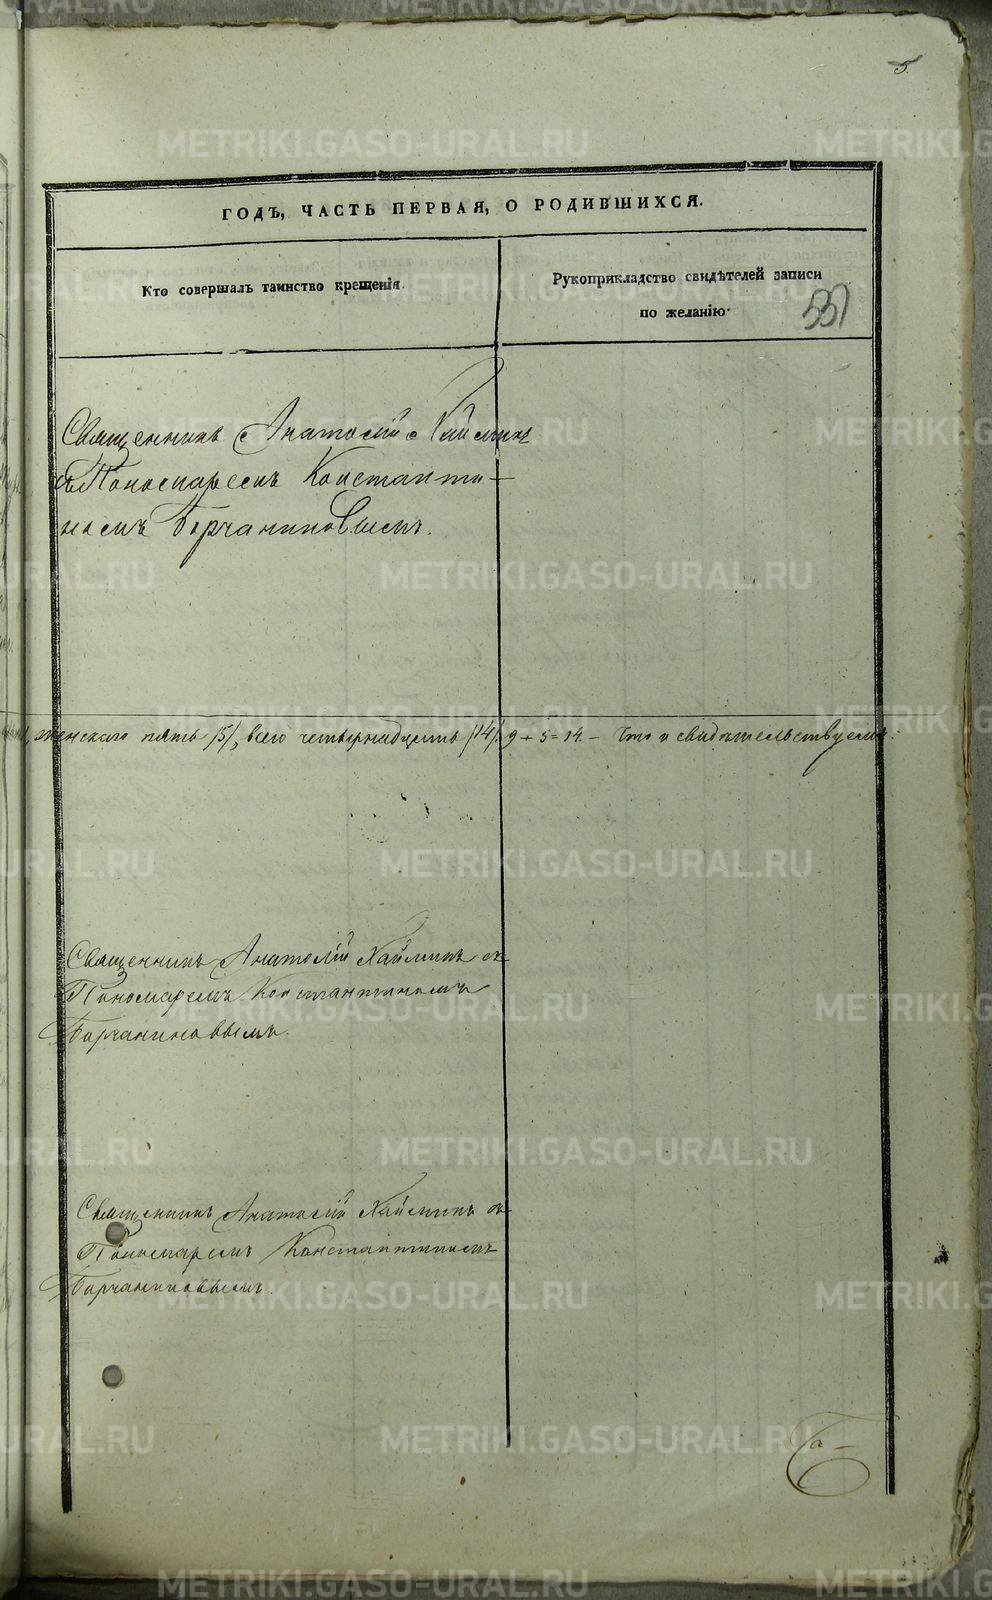 5.
ГОДЪ, ЧАСТЬ ПЕРВАЯ, О РОДИВШИХСЯ.
Кто совершалъ таинство крещенія.
Рукоприкладство свидѣтелей записи
по желанію.
557
Священникъ Анатолій Хайминъ
съ Пономаремъ Константи-
номъ Борчаниновымъ.
женскаго пять /5/, всего четырнадцать /14/. 9 + 5 = 14. – Что и свидѣтельствуемъ.
Священникъ Анатолій Хайминъ съ
Пономаремъ Константиномъ
Борчаниновымъ.
Священникъ Анатолій Хайминъ съ
Пономаремъ Константиномъ
Борчаниновымъ.
METRIKI.GASO-URAL.RU